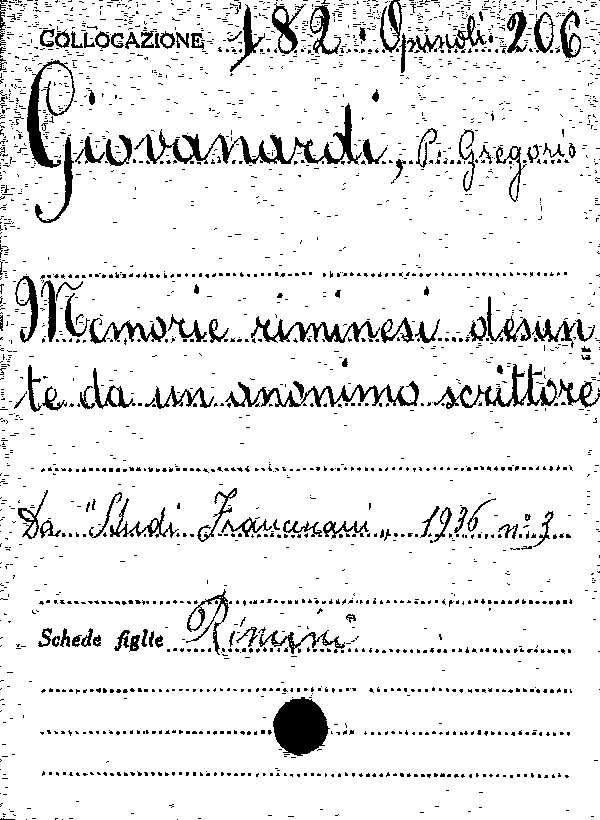 COLLOCAZIONE 182. Opuscoli. 206
Giovanardi, P. Gregorio
Memorie riminesi desun=
te da un anonimo scrittore
Da "Studi Francescani" 1936 n° 3
Schede figlie Rimini